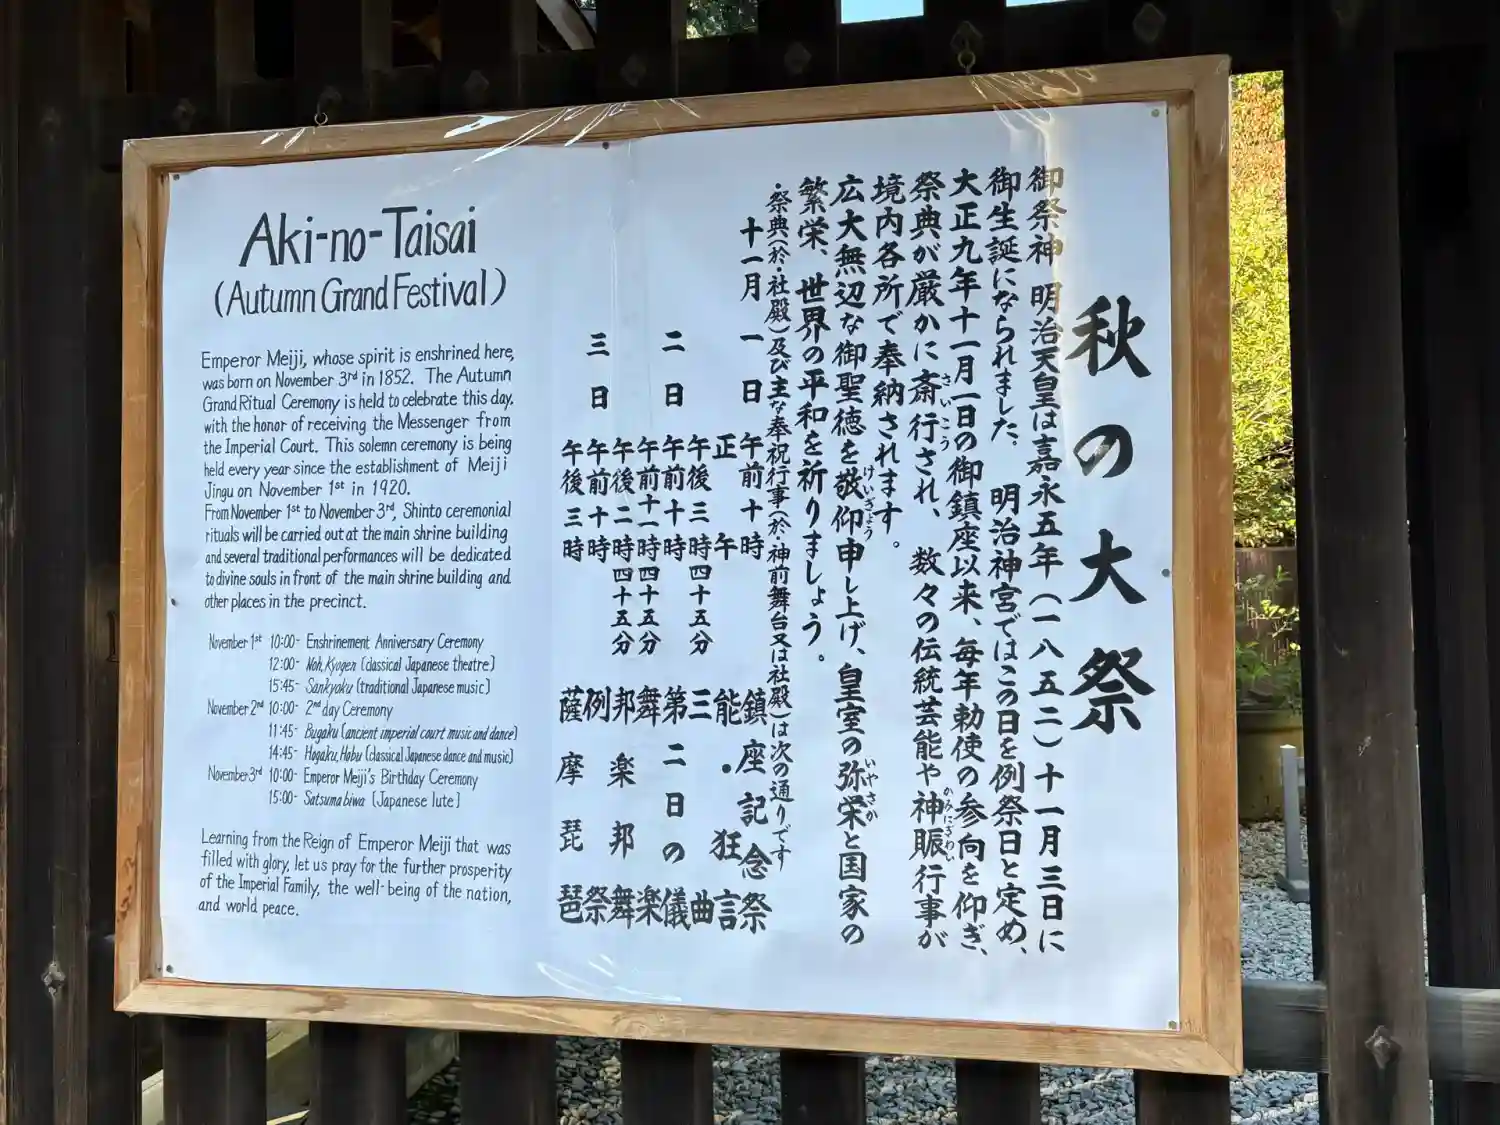 Aki-no-Taisai
(Autumn Grand Festival)
Emperor Meiji, whose spirit is enshrined here,
was born on November 3rd in 1852. The Autumn
Grand Ritual Ceremony is held to celebrate this day,
with the honor of receiving the Messenger from
the Imperial Court. This solemn ceremony is being
held every year since the establishment of Meiji
Jingu on November 1st in 1920.
From November 1st to November 3rd, Shinto ceremonial
rituals will be carried out at the main shrine building
and several traditional performances will be dedicated
to divine souls in front of the main shrine building and
other places in the precinct.
November 1st 10:00- Enshrinement Anniversary Ceremony
12:00- Noh, Kyogen (classical Japanese theatre)
15:45- Sankyoku (traditional Japanese music)
November 2nd 10:00- 2nd day Ceremony
11:45- Bugaku (ancient imperial court music and dance)
14:45- Hogaku, Hobu (classical Japanese dance and music)
November 3rd 10:00- Emperor Meiji's Birthday Ceremony
15:00- Satsuma biwa (Japanese lute)
Learning from the Reign of Emperor Meiji that was
filled with glory, let us pray for the further prosperity
of the Imperial Family, the well-being of the nation,
and world peace.
秋の大祭
御祭神 明治天皇は嘉永五年(一八五二)十一月三日に
御生誕になられました。 明治神宮ではこの日を例祭日と定め、
大正九年十一月一日の御鎮座以来、毎年勅使の参向を仰ぎ、
祭典が厳かに斎行され、 数々の伝統芸能や神賑行事が
さいこう
かみにぎわい
境内各所で奉納されます。
広大無辺な御聖徳を敬仰申し上げ、皇室の弥栄と国家の
けいぎょう
いやさか
繁栄、世界の平和を祈りましょう。
・祭典(於・社殿)及び主な奉祝行事(於・神前舞台又は社殿)は次の通りです
十一月 一日 午前十時 鎮座記念祭
正午 能・狂言
午後三時四十五分 三曲
二日 午前十時 第二日の儀
午前十一時四十五分 舞楽
午後二時四十五分 邦楽邦舞
三日 午前十時 例祭
午後三時 薩摩琵琶